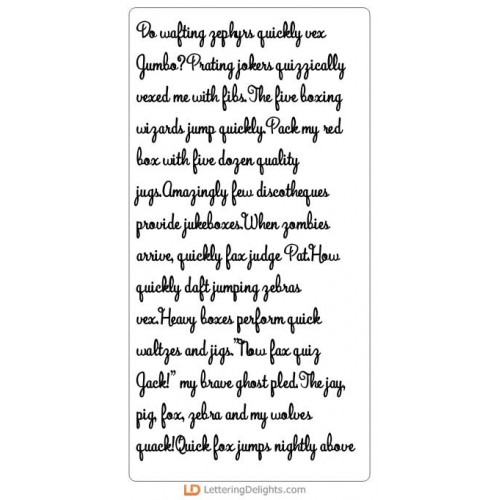 Do wafting zephyrs quickly vex
Jumbo?Prating jokers quizzically
vexed me with fibs.The five boxing
wizards jump quickly.Pack my red
box with five dozen quality
jugs.Amazingly few discotheques
provide jukeboxes.When zombies
arrive, quickly fax judge Pat.How
quickly daft jumping zebras
vex.Heavy boxes perform quick
waltzes and jigs."Now fax quiz
Jack!" my brave ghost pled.The jay,
pig, fox, zebra and my wolves
quack!Quick fox jumps nightly above
LD LetteringDelights.com